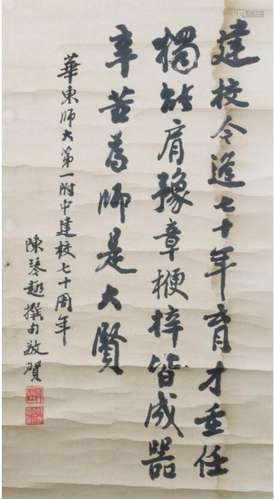 建校今逢七十年育才重任
獨能肩豫章梗梓皆成器
辛苦爲師是大賢
華東師大第一附中建校七十周年
陳琴趣撰句敬賀